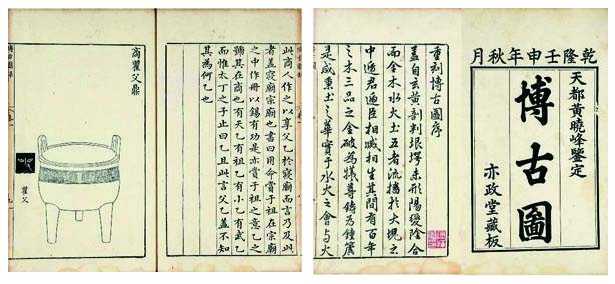 乾隆壬申年秋月
天都黃曉峰鑒定
博古圖
亦政堂藏板
重刻博古圖序
蓋自玄黃剖判垠堮未形陽變陰合
而金木水火土五者流播於大塊之
中遞君遞臣相烕相生其間有百年
之木三品之金破為犧尊鑄為鍾簴
是咸東土之華實于水火之會與火
此商人作之以享父乙於寢廟而言乃及此
者蓋寢廟宗廟也書曰用命賞于祖在宗廟
之中作冊以錫有功是亦賞于祖之意乙之
號其在商也有天乙有祖乙有小乙有武乙
而惟太丁之子止曰乙且此言父乙蓋不知
其為何乙也
商瞿父鼎
瞿父